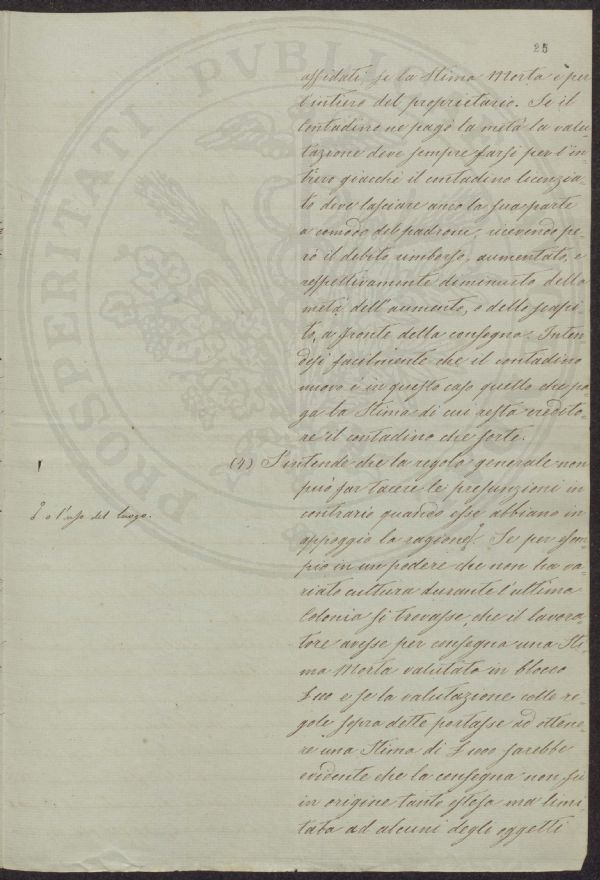 25
affidati, se la Stima Morta è per
l'intiero del proprietario. Se il
Contadino ne pagò la metà la valu-
tazione deve sempre farsi per l'in-
tiero giacchè il contadino licenzia-
to deve lasciare anco la sua parte
a comodo del padrone, ricevendo pe-
rò il debito rimborso, aumentato, e
respettivamente diminuito della
metà dell'aumento, o dello scapi-
to, a fronte della consegna. Inten-
desi facilmente che il contadino
nuovo è in questo caso quello che pa-
ga la Stima di cui resta credito-
re il contadino che sorte.
(4) S'intende che la regola generale non
può far tacere le presunzioni in
contrario quando esse abbiano in
appoggio la ragione. Se per esem-
pio in un podere che non ha va-
riato cultura durante l'ultima
Colonia si trovasse, che il lavora-
tore avesse per consegna una Sti-
ma Morta valutata in blocco
£ 100 e se la valutazione colle re-
gole sopra dette portasse ad ottene-
re una Stima di £ 1000 sarebbe
evidente che la consegna non fu
in origine tanto estesa ma limi-
tata ad alcuni degli oggetti
o l'uso del luogo.
PROSPERITATI PVBLICAE